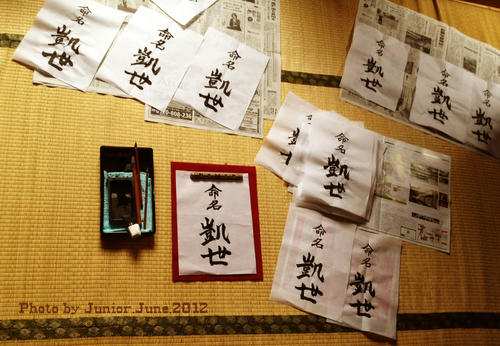 命名
凱世
命名
凱世
命名
凱世
命名
凱世
命名
凱世
命名
凱世
命名
凱世
命名
凱世
命名
凱世
命名
凱世
命名
凱世
Photo by Junior.June.2012